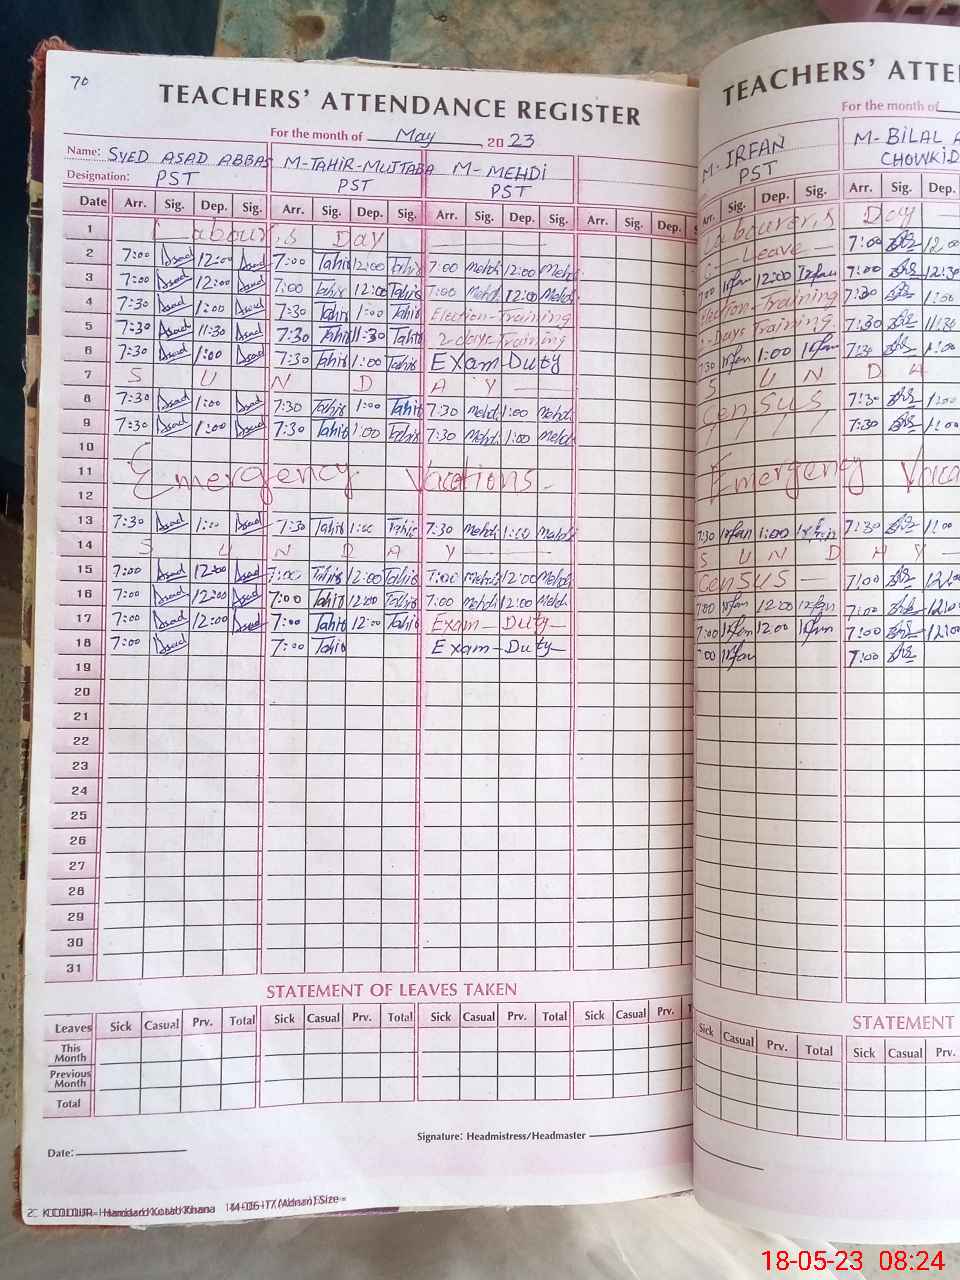 70
TEACHERS' ATTENDANCE REGISTER
For the month of May 2023
Name: SYED ASAD ABBAS M-TAHIR-MUJTABA M- MEHDI
Designation: PST PST PST
Date Arr. Sig. Dep. Sig. Arr. Sig. Dep. Sig. Arr. Sig. Dep. Sig. Arr. Sig. Dep. S
1 Labour,s Day
2 7:00 Asad 12:00 Asad 7:00 Tahir 12:00 Tahir 7:00 Mehdi 12:00 Mehdi
3 7:00 Asad 12:00 Asad 7:00 Tahir 12:00 Tahir 7:00 Mehdi 12:00 Mehdi
4 7:30 Asad 1:00 Asad 7:30 Tahir 1:00 Tahir Election-Training
5 7:30 Asad 11:30 Asad 7:30 Tahir 11:30 Tahir 2-days-Training
6 7:30 Asad 1:00 Asad 7:30 Tahir 1:00 Tahir Exam-Duty
7 S U N D A Y
8 7:30 Asad 1:00 Asad 7:30 Tahir 1:00 Tahir 7:30 Mehdi 1:00 Mehdi
9 7:30 Asad 1:00 Asad 7:30 Tahir 1:00 Tahir 7:30 Mehdi 1:00 Mehdi
10
11 Emergency Vacations.
12
13 7:30 Asad 1:00 Asad 7:30 Tahir 1:00 Tahir 7:30 Mehdi 1:00 Mehdi
14 S U N D A Y
15 7:00 Asad 12:00 Asad 7:00 Tahir 12:00 Tahir 7:00 Mehdi 12:00 Mehdi
16 7:00 Asad 12:00 Asad 7:00 Tahir 12:00 Tahir 7:00 Mehdi 12:00 Mehdi
17 7:00 Asad 12:00 Asad 7:00 Tahir 12:00 Tahir Exam- Duty
18 7:00 Asad 7:00 Tahir Exam-Duty
19
20
21
22
23
24
25
26
27
28
29
30
31
STATEMENT OF LEAVES TAKEN
Leaves Sick Casual Prv. Total Sick Casual Prv. Total Sick Casual Prv. Total Sick Casual Prv. T
This Month
Previous Month
Total
Signature: Headmistress/Headmaster
Date:
TEACHERS' ATTE
For the month of
M- IRFAN M- BILAL A
PST CHOWKID
Arr. Sig. Dep. Sig. Arr. Sig. Dep.
Labourer,s Day
Leave 7:00 12:00
7:00 Irfan 12:00 Irfan 7:00 12:30
Election-Training 7:30 1:00
Days Training. 7:30 11:30
7:30 Irfan 1:00 Irfan 7:30 1:00
S U N D A
Census 7:30 1:00
7:30 1:00
Emergency Vaca
7:30 Irfan 1:00 Irfan 7:30 1:00
S U N D A Y
Census 7:00 12:00
7:00 Irfan 12:00 Irfan 7:00 12:00
7:00 Irfan 12:00 Irfan 7:00 12:00
:00 Irfan 7:00
STATEMENT
Sick Casual Prv. Total Sick Casual Prv.
18-05-23 08:24